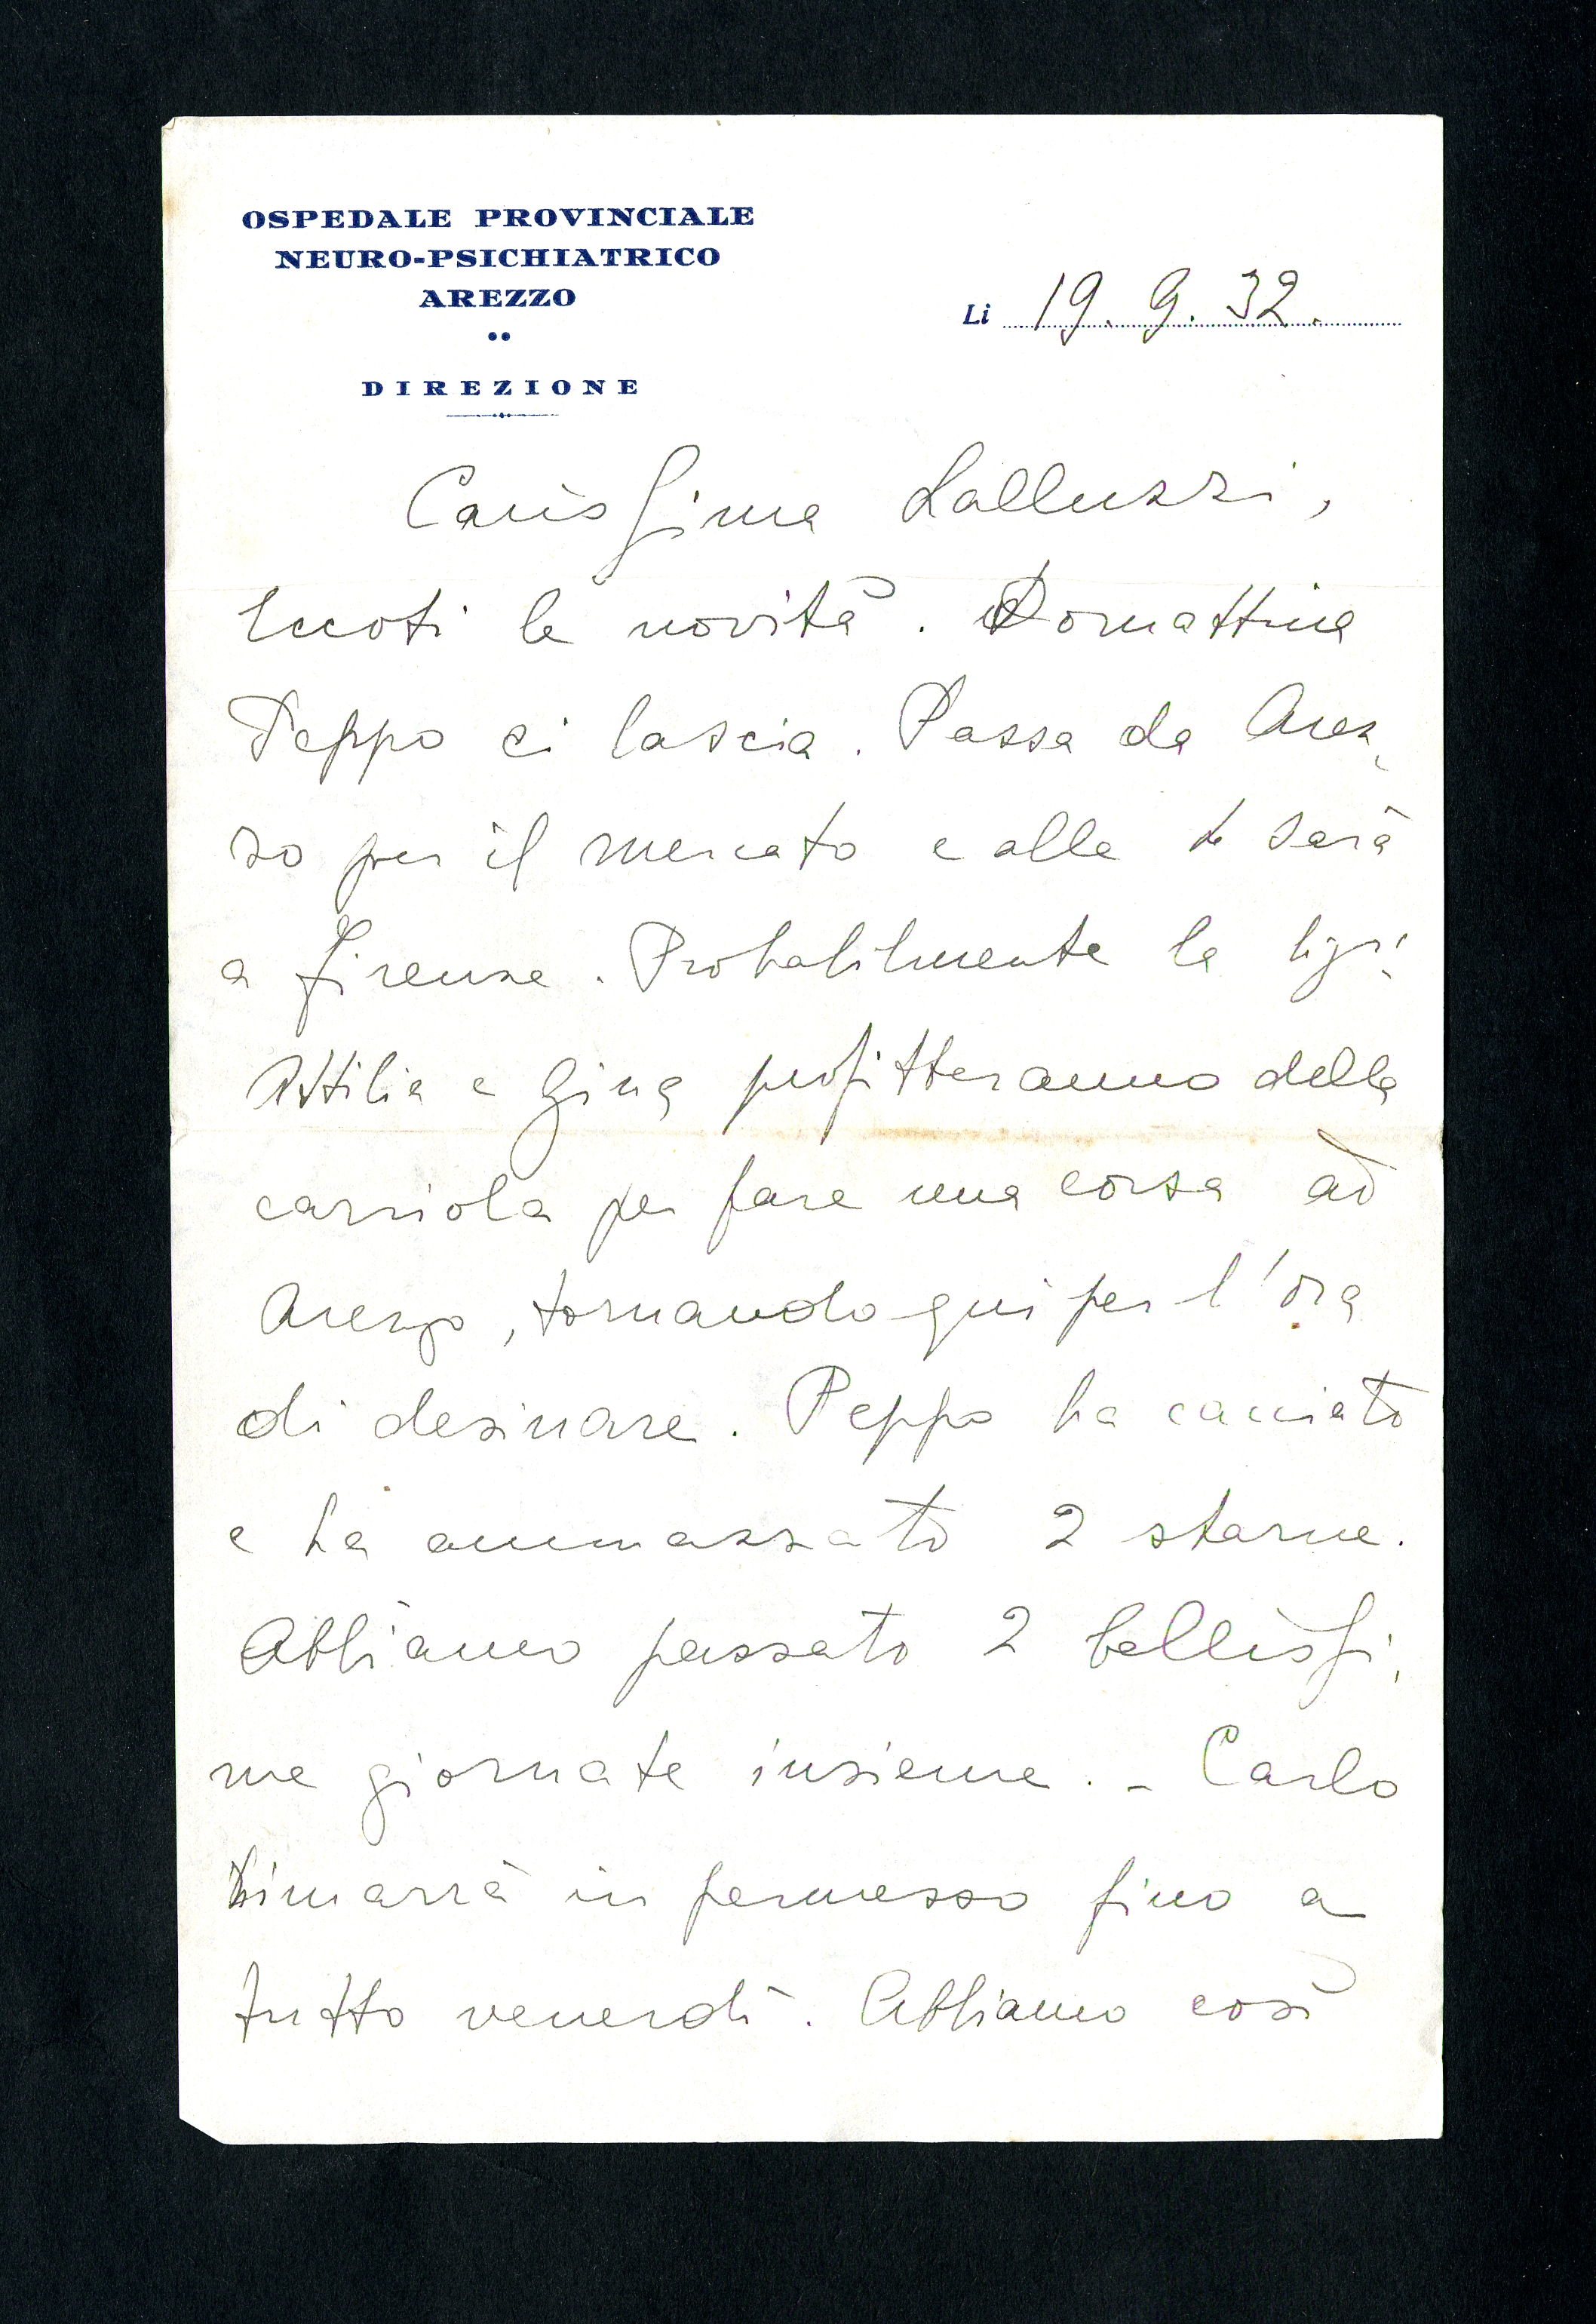 OSPEDALE PROVINCIALE
NEURO-PSICHIATRICO
AREZZO
DIREZIONE
Li 19. 9. 32.
Carissima Lalluzzi,
Eccoti le novità. Domattina
Peppo ci lascia. Passa da Arez,
zo per il mercato e alle sarà
a Firenze. Probabilmente la
Attilia e Gina profitteranno della
carriola per fare una corsa ad
Arezzo, tornando qui per l'ora
di desinare. Peppo ha cacciato
e ha ammazzato 2 starne.
Abbiamo passato 2 bellissi,
me giornate insieme. - Carlo
rimarrà in permesso fino a
tutto venerdì. Abbiamo così